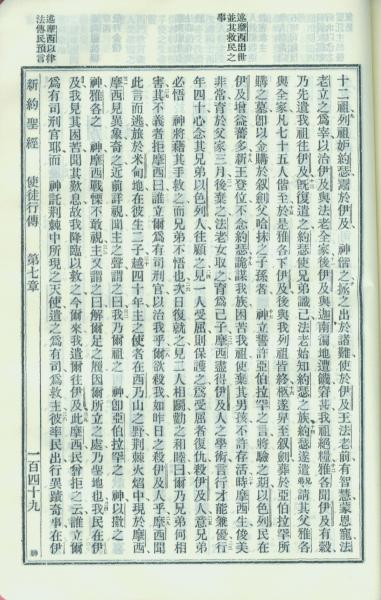 述摩西出世
並其救民之
事
述摩西以律
法傳民預言
十二祖列祖妒約瑟鬻於伊及、神偕之拯之出於諸難使於伊及王法老前有智慧蒙恩寵法
老立之爲宰以治伊及與法老全家後伊及與迦南徧地遭饑窘甚我祖絕糧雅各聞伊及有穀
乃先遣我祖往伊及旣復遣之約瑟使兄弟識己法老始知約瑟之族約瑟遂遣請其父雅各
與全家凡七十五人偕至於是雅各下伊及後與我列祖皆終柩遂舁至敘劍葬於亞伯拉罕所
購之墓卽以金購於敘劍父哈抹之子孫者 神立誓許亞伯拉罕之言將驗之期以色列民在
伊及增益蕃多新王登位不念約瑟詭謀我族困苦我祖使棄其男孩不許存活時摩西生俊美
非常育於父家三月後棄之法老女取之育爲己子摩西盡得伊及人之學術言行才能兼優行
年四十心念其兄弟以色列人往顧之見一人受屈則保護之爲受屈者復仇殺伊及人意兄弟
必悟 神將藉其手救之而兄弟不悟也次日復就之見二人相鬭勸之和睦曰爾乃兄弟何相
害其不義者拒摩西曰誰立爾爲有司刑官以治我乎爾欲殺我如昨日之殺伊及人乎摩西聞
此言而逃旅於米甸地在彼生二子越四十年主之使者在西乃山之野荆棘火焰中現於摩西
摩西見異象奇之近前詳視聞主之聲謂之曰我乃爾祖之 神卽亞伯拉罕之 神以撒之
神雅各之 神摩西戰慄不敢視主又謂之曰解爾足之履因爾所立之處乃聖地也我民在伊
及我見其困苦聞其歎息故我降臨以救之今爾來我遣爾往伊及此摩西民曾拒之云誰立爾
爲有司刑官耶而 神託荆棘中所現之天使遣之爲有司爲救主彼率民出行異蹟奇事在伊
新約聖經 使徒行傳 第七章 一百四十九